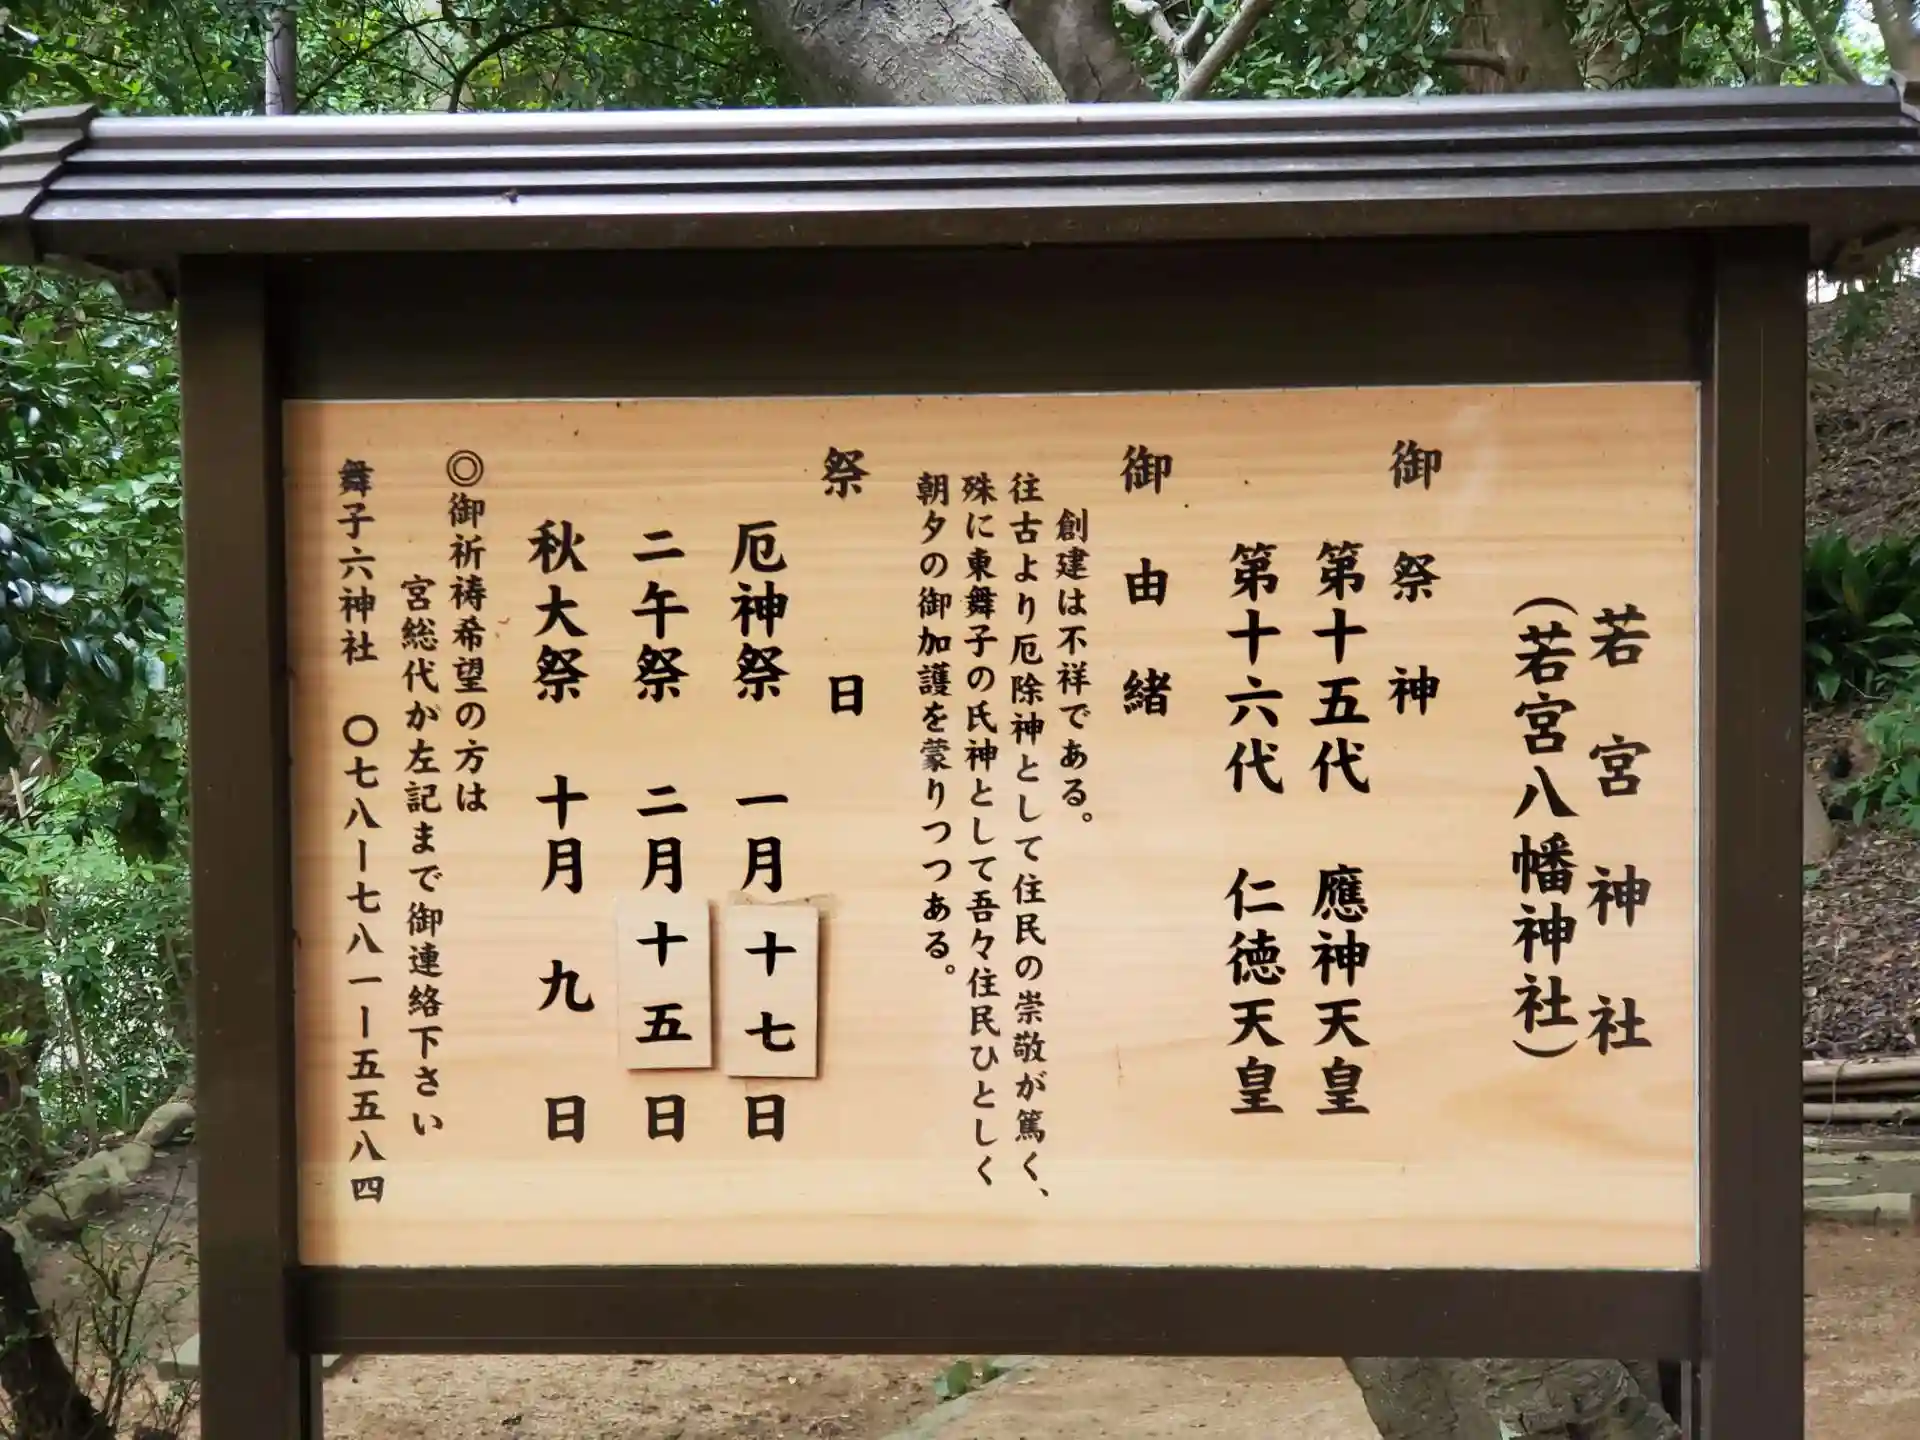 若宮神社
（若宮八幡神社）
御祭神
第十五代　應神天皇
第十六代　仁徳天皇
御由緒
創建は不祥である。
往古より厄除神として住民の崇敬が篤く、
殊に東舞子の氏神として吾々住民ひとしく
朝夕の御加護を蒙りつつある。
祭日
厄神祭　一月十七日
二午祭　二月十五日
秋大祭　十月九日
◎御祈祷希望の方は
宮総代か左記まで御連絡下さい
舞子六神社　〇七八ー七八一ー五五八四